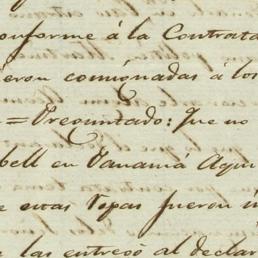 conforme á la Contrata
ieron comicionadas á los
= Preguntado: Que no
bell en Panamá Aqui
e estas Ropas fueron
las entregó al declar